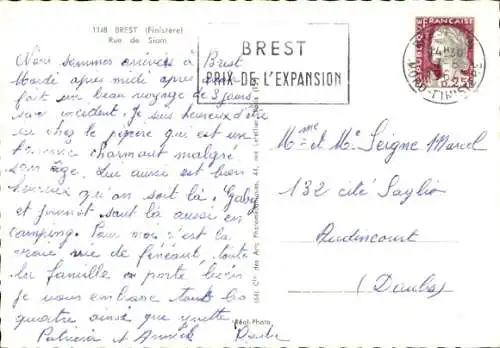 1148 BREST (Finistère)
Rue de Siam
Nous sommes arrivés à Brest
Mardi après midi après avoir
fait un beau voyage de 3 jours
sans incident. Je suis heureux d'être
ici chez le pépère qui est un
homme charmant malgré
son âge. Lui aussi est bien
heureux qu'on soit là. Gaby
et sont là aussi en
camping. Pour moi c'est la
vraie vie de fénéant, toute
la famille se porte bien
je vous embrasse tous les
quatre ainsi que yvette
Patricia et Annick
Réal-Photo
BREST
PRIX DE L'EXPANSION
RÉPUBLIQUE FRANÇAISE
Mme et Mr Seigne Marcel
132 cité
Audincourt
(Doubs)